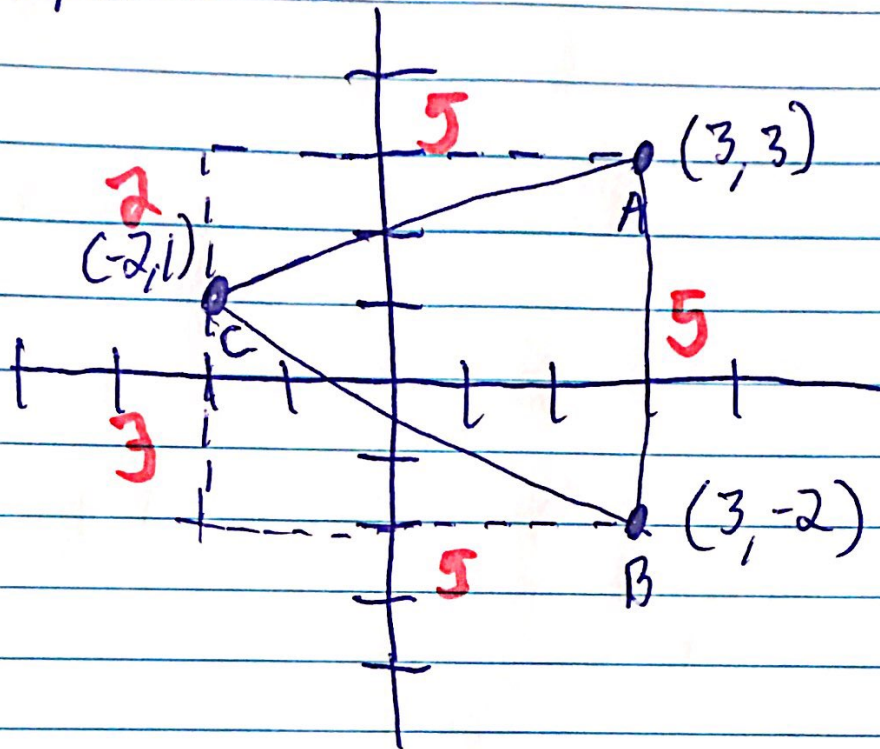 5
(3,3)
2
A
(-2,1)
C
5
3
(3,-2)
5
B